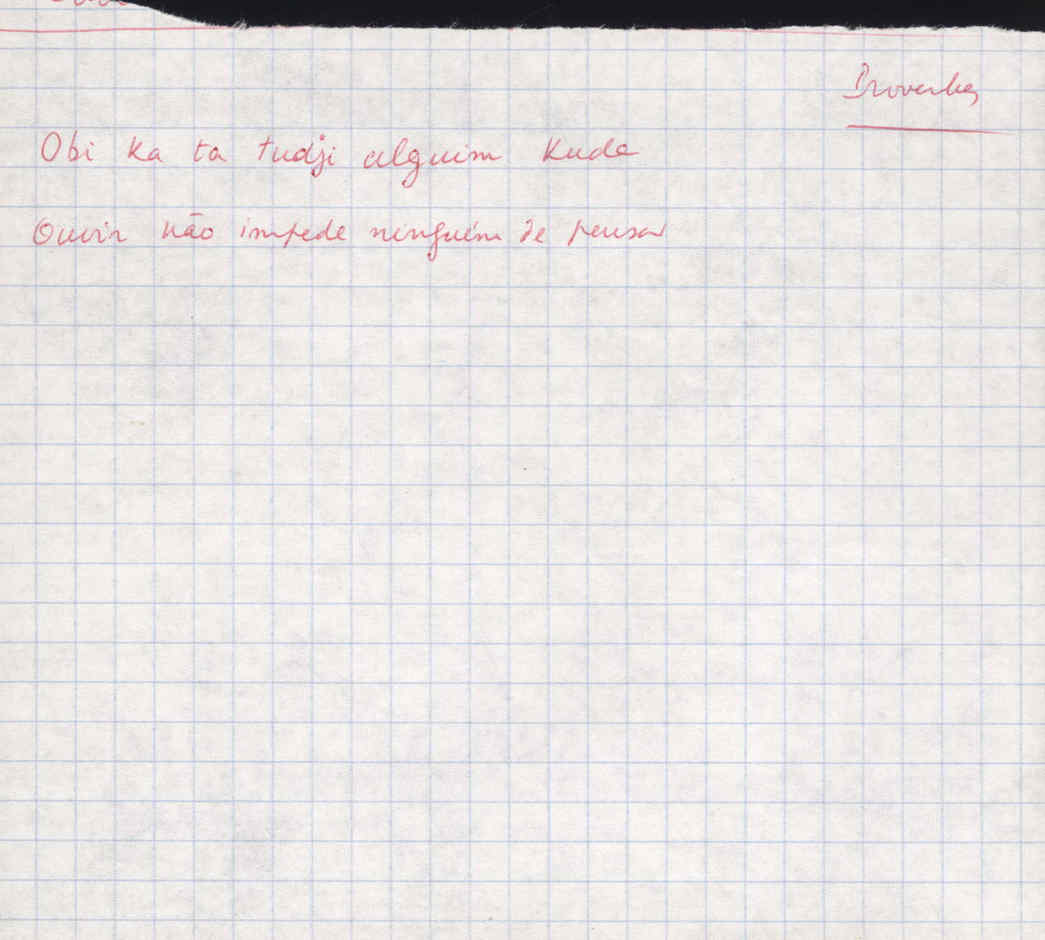 Proverbes
Obi ka ta tudji alguim kuda
Ouvir não impede ninguém de pensar